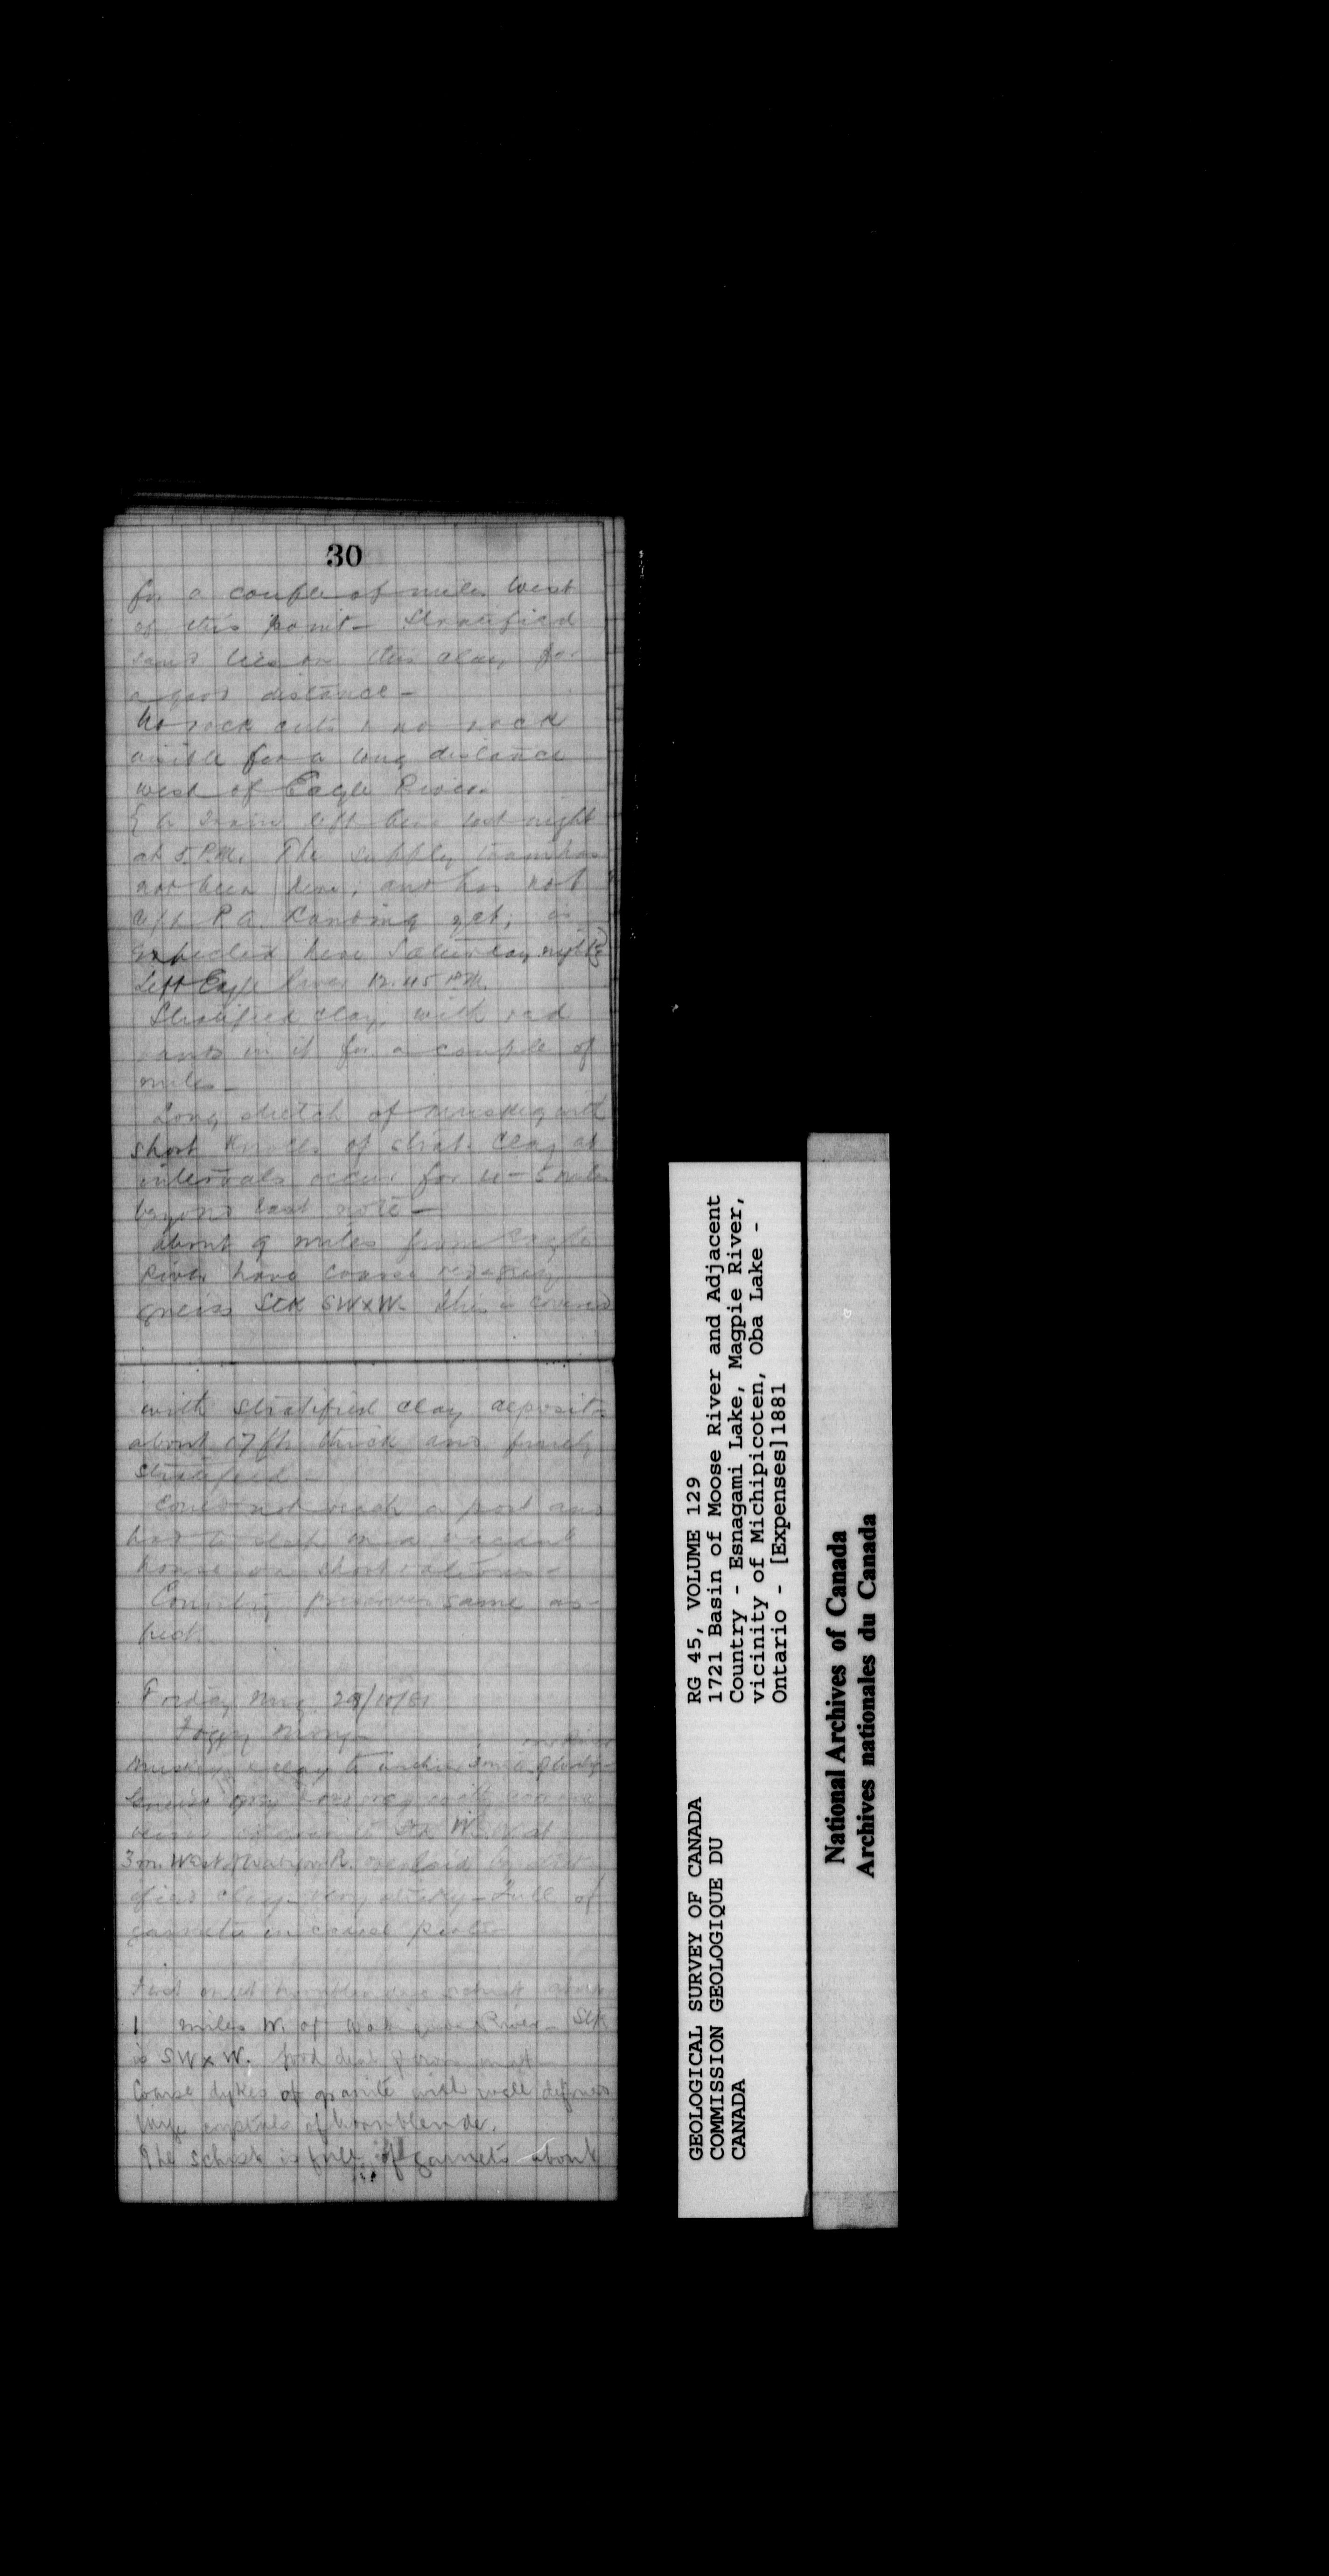 30
for a couple of miles West
of this point - Stratified
sand lies on this clay for
a good distance -
No rock cuts & no rock
visible for a long distance
west of Eagle River.
{ A train left here last night
at 5 P.M. The supply train has
not been here, and has not
left P.A. Landing yet, is
expected here Saturday night }
Left Eagle River 12.45 P.M.
Stratified clay, with red
sand in it for a couple of
miles -
Long stretch of muskeg with
short knolls of strat. clay at
intervals occur for 4 - 5 miles
beyond last note -
About 9 miles from Eagle
River have coarse red-grey
gneiss Stk SWxW. This is covered
with stratified clay deposit
about 17 ft. thick and finely
stratified -
Could not reach a post and
had to sleep in a vacant
house on short rations -
Country preserves same as-
pect.
Friday Mng 28/10/81
Foggy morng -
Muskeg & clay to within
Gneiss grey
Stk W
3 m. West R. overlaid by strat-
ified clay - Full of
garnets in places
hornblende schist about
1 miles W. of River - Stk
is SWxW. Good deal of
Coarse dykes of granite with well defined
large crystals of hornblende.
The schist is full of garnets about
RG 45, VOLUME 129
1721 Basin of Moose River and Adjacent
Country - Esnagami Lake, Magpie River,
vicinity of Michipicoten, Oba Lake -
Ontario - [Expenses]1881
GEOLOGICAL SURVEY OF CANADA
COMMISSION GEOLOGIQUE DU
CANADA
National Archives of Canada
Archives nationales du Canada